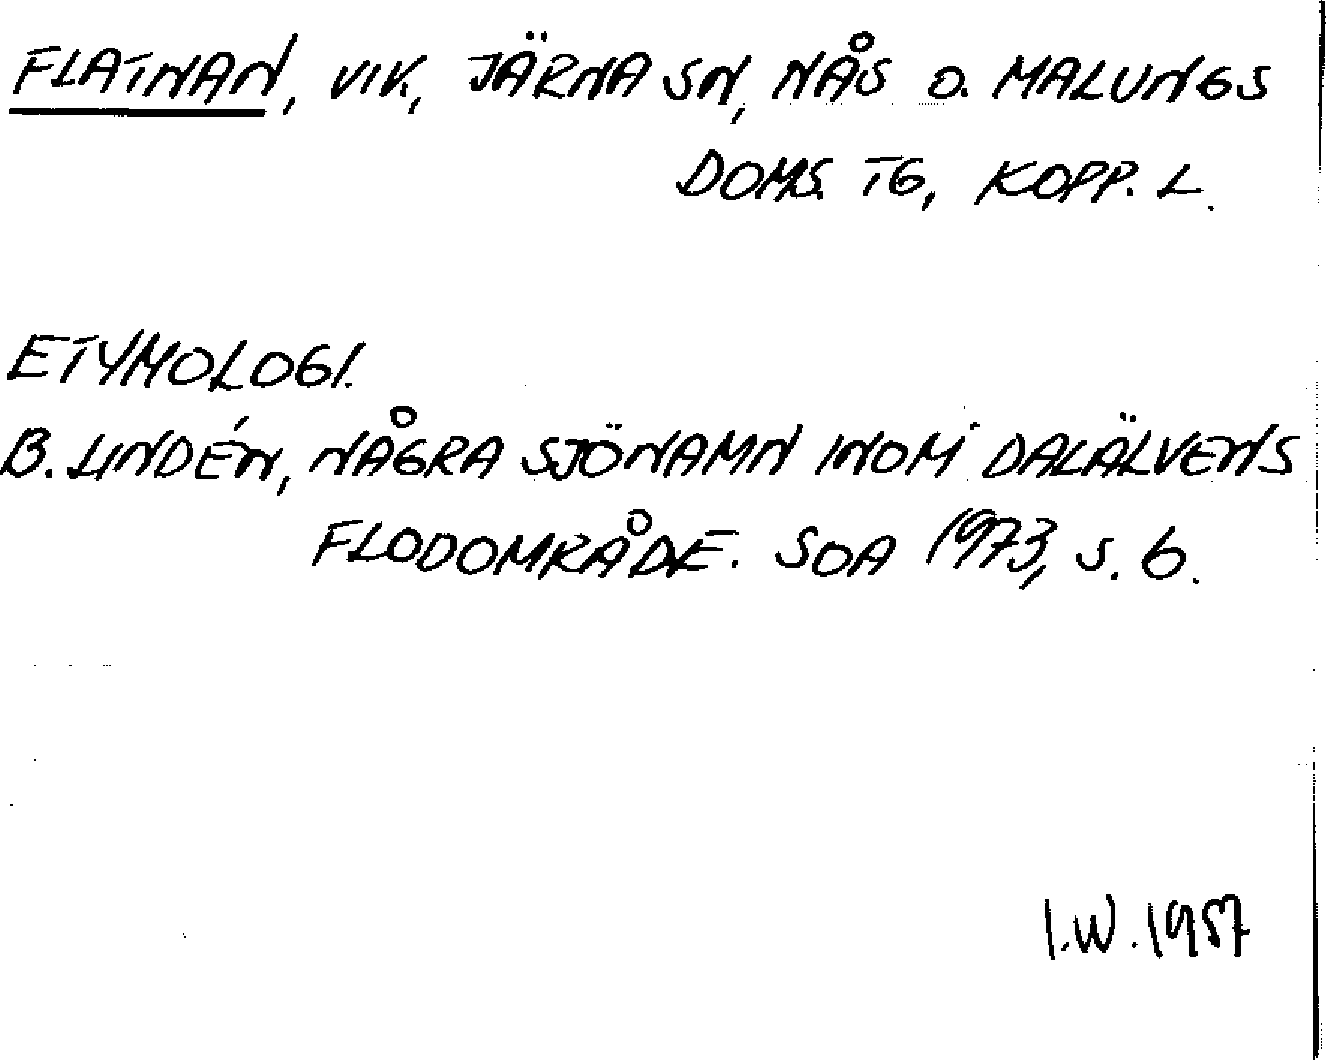 FLATNAN, VIK, JÄRNA SN, NÅS O. MALUNGS
DOMS. TG, KOPP. L.
ETYMOLOGI.
B. LINDÉN, NÅGRA SJÖNAMN INOM DALÄLVENS
FLODOMRÅDE. SOA 1973, S. 6.
I.W. 1987